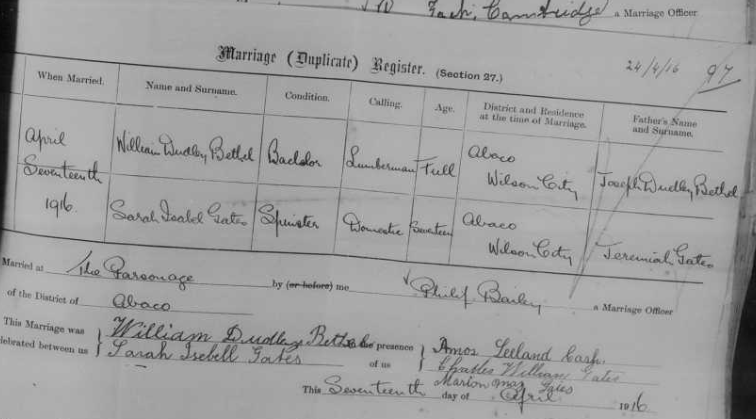 Cambridge a Marriage Officer
Marriage (Duplicate) Register. (Section 27.) 24/4/16 97
When Married. Name and Surname. Condition. Calling. Age. District and Residence at the time of Marriage. Father's Name and Surname.
April Seventeenth 1916. William Dudley Bethel Bachelor Lumberman Full Abaco Wilson City Joseph Dudley Bethel
Sarah Isabel Gates Spinster Domestic Seventeen Abaco Wilson City Jeremiah Gates
Married at The Parsonage by (or before) me Philip Bailey a Marriage Officer
of the District of Abaco
This Marriage was William Dudley Bethel presence Amos Leeland Cash
elebrated between us Sarah Isebell Gates of us Charles William Gates
Marion Gates
This Seventeenth day of April 1916